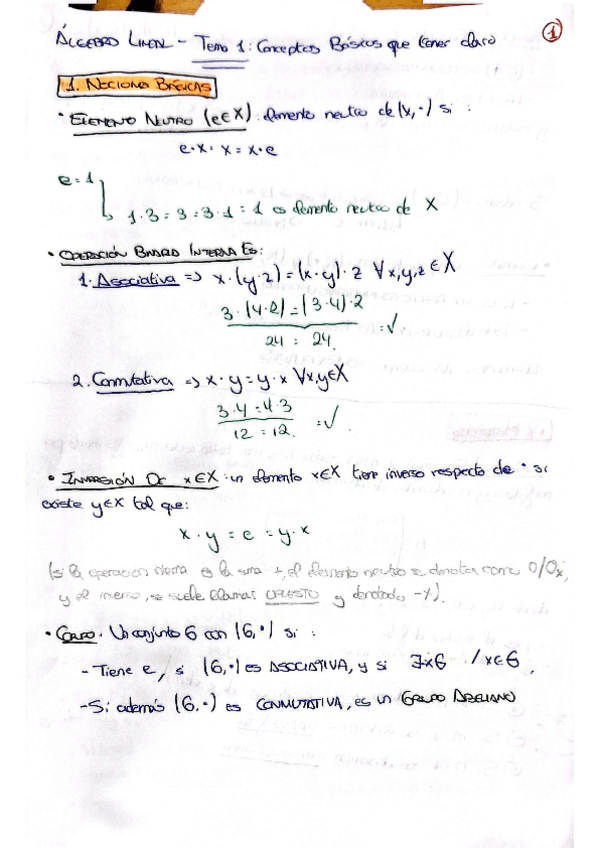 ÁLGEBRA LINEAL - Tema 1: Conceptos Básicos que tener claro
1
1. NOCIONES BÁSICAS
· ELEMENTO NEUTRO (e∈X): elemento neutro de (X, ·) si :
e·x = x = x·e
e=1
1·3 = 3 = 3·1 = 1 es elemento neutro de X
· OPERACIÓN BINARIA INTERNA ES:
1. Asociativa => x·(y·z) = (x·y)·z ∀x,y,z∈X
3·(4·2) = (3·4)·2
24 = 24
=✓
2. Conmutativa => x·y = y·x ∀x,y∈X
3·4 = 4·3
12 = 12.
=✓.
· INVERSIÓN DE x∈X: un elemento x∈X tiene inverso respecto de · si
existe y∈X tal que:
x·y = e = y·x
(si la operación interna es la suma +, el elemento neutro se denotar como 0/0x,
y el inverso, se suele llamar OPUESTO y denotado -x).
· Un conjunto G con (G,·) si :
- Tiene e, si (G,·) es ASOCIATIVA, y si /x∈G.
- Si además (G,·) es CONMUTATIVA, es un GRUPO ABELIANO